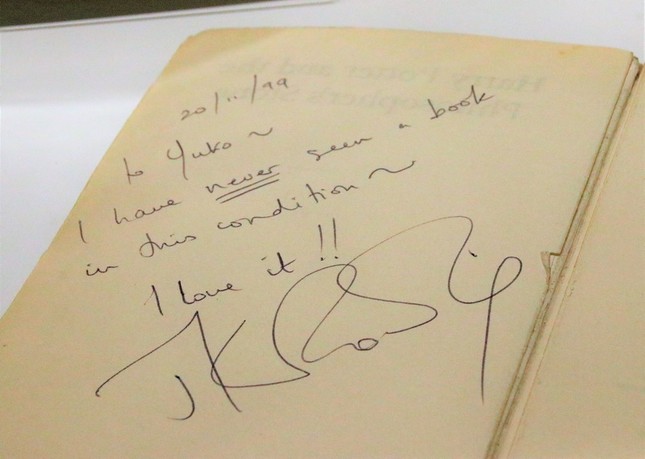 20/11/99
to Yuko ~
I have never seen a book
in this condition ~
I love it!!
JK Rowling
Harry Potter and the
Philosopher's Stone